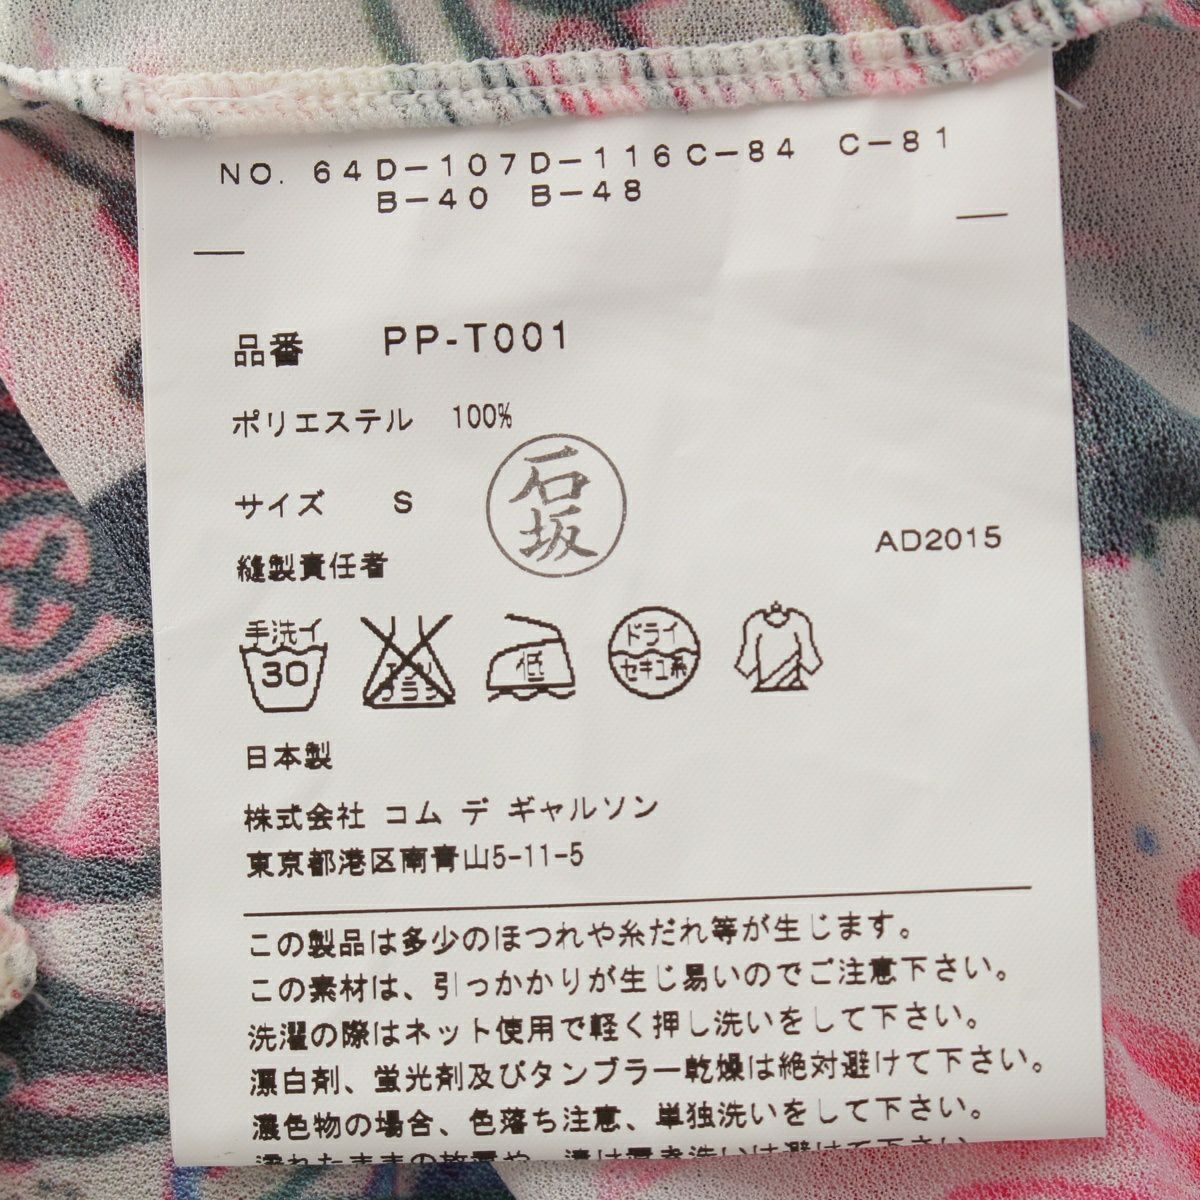 NO. 64D-107D-116C-84 C-81
B-40 B-48
品番 PP-T001
ポリエステル 100%
石
坂
サイズ S
AD2015
縫製責任者
手洗イ
30
エンソ
サラシ
低
ドライ
セキユ系
日本製
株式会社 コム デ ギャルソン
東京都港区南青山5-11-5
この製品は多少のほつれや糸だれ等が生じます。
この素材は、引っかかりが生じ易いのでご注意下さい。
洗濯の際はネット使用で軽く押し洗いをして下さい。
漂白剤、蛍光剤及びタンブラー乾燥は絶対避けて下さい。
濃色物の場合、色落ち注意、単独洗いをして下さい。
濡れたままの放置や、漬け置き洗いは避けて下さい。